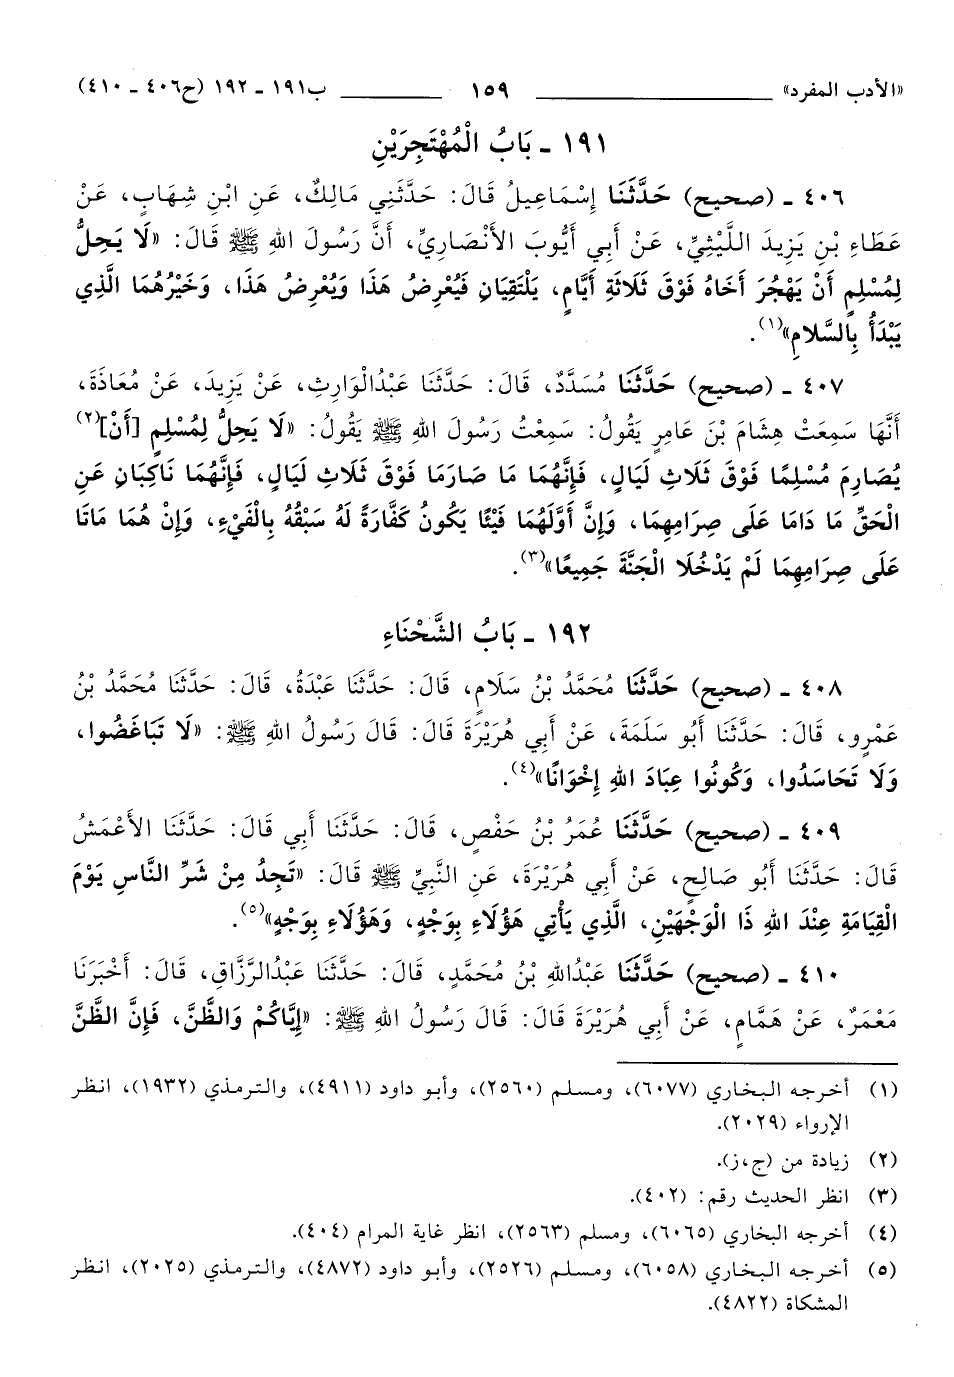 «الأدب المفرد» ١٥٩ ب١٩١ ـ ١٩٢ (ح٤٠٦ ـ ٤١٠)
١٩١ ـ بَابُ الْمُهْتَجِرَيْنِ
٤٠٦ ـ (صحيح) حَدَّثَنَا إِسْمَاعِيلُ قَالَ: حَدَّثَنِي مَالِكٌ، عَنِ ابْنِ شِهَابٍ، عَنْ
عَطَاءِ بْنِ يَزِيدَ اللَّيْثِيِّ، عَنْ أَبِي أَيُّوبَ الأَنْصَارِيِّ، أَنَّ رَسُولَ اللهِ ﷺ قَالَ: «لَا يَحِلُّ
لِمُسْلِمٍ أَنْ يَهْجُرَ أَخَاهُ فَوْقَ ثَلَاثَةِ أَيَّامٍ، يَلْتَقِيَانِ فَيُعْرِضُ هَذَا وَيُعْرِضُ هَذَا، وَخَيْرُهُمَا الَّذِي
يَبْدَأُ بِالسَّلَامِ»(١).
٤٠٧ ـ (صحيح) حَدَّثَنَا مُسَدَّدٌ، قَالَ: حَدَّثَنَا عَبْدُالْوَارِثِ، عَنْ يَزِيدَ، عَنْ مُعَاذَةَ،
أَنَّهَا سَمِعَتْ هِشَامَ بْنَ عَامِرٍ يَقُولُ: سَمِعْتُ رَسُولَ اللهِ ﷺ يَقُولُ: «لَا يَحِلُّ لِمُسْلِمٍ [أَنْ](٢)
يُصَارِمَ مُسْلِمًا فَوْقَ ثَلَاثِ لَيَالٍ، فَإِنَّهُمَا مَا صَارَمَا فَوْقَ ثَلَاثِ لَيَالٍ، فَإِنَّهُمَا نَاكِبَانِ عَنِ
الْحَقِّ مَا دَامَا عَلَى صِرَامِهِمَا، وَإِنَّ أَوَّلَهُمَا فَيْئًا يَكُونُ كَفَّارَةً لَهُ سَبْقُهُ بِالْفَيْءِ، وَإِنْ هُمَا مَاتَا
عَلَى صِرَامِهِمَا لَمْ يَدْخُلَا الْجَنَّةَ جَمِيعًا»(٣).
١٩٢ ـ بَابُ الشَّحْنَاءِ
٤٠٨ ـ (صحيح) حَدَّثَنَا مُحَمَّدُ بْنُ سَلَامٍ، قَالَ: حَدَّثَنَا عَبْدَةُ، قَالَ: حَدَّثَنَا مُحَمَّدُ بْنُ
عَمْرٍو، قَالَ: حَدَّثَنَا أَبُو سَلَمَةَ، عَنْ أَبِي هُرَيْرَةَ قَالَ: قَالَ رَسُولُ اللهِ ﷺ: «لَا تَبَاغَضُوا،
وَلَا تَحَاسَدُوا، وَكُونُوا عِبَادَ اللهِ إِخْوَانًا»(٤).
٤٠٩ ـ (صحيح) حَدَّثَنَا عُمَرُ بْنُ حَفْصٍ، قَالَ: حَدَّثَنَا أَبِي قَالَ: حَدَّثَنَا الأَعْمَشُ
قَالَ: حَدَّثَنَا أَبُو صَالِحٍ، عَنْ أَبِي هُرَيْرَةَ، عَنِ النَّبِيِّ ﷺ قَالَ: «تَجِدُ مِنْ شَرِّ النَّاسِ يَوْمَ
الْقِيَامَةِ عِنْدَ اللهِ ذَا الْوَجْهَيْنِ، الَّذِي يَأْتِي هَؤُلَاءِ بِوَجْهٍ، وَهَؤُلَاءِ بِوَجْهٍ»(٥).
٤١٠ ـ (صحيح) حَدَّثَنَا عَبْدُاللهِ بْنُ مُحَمَّدٍ، قَالَ: حَدَّثَنَا عَبْدُالرَّزَّاقِ، قَالَ: أَخْبَرَنَا
مَعْمَرٌ، عَنْ هَمَّامٍ، عَنْ أَبِي هُرَيْرَةَ قَالَ: قَالَ رَسُولُ اللهِ ﷺ: «إِيَّاكُمْ وَالظَّنَّ، فَإِنَّ الظَّنَّ
(١) أخرجه البخاري (٦٠٧٧)، ومسلم (٢٥٦٠)، وأبو داود (٤٩١١)، والترمذي (١٩٣٢)، انظر
الإرواء (٢٠٢٩).
(٢) زيادة من (ج،ز).
(٣) انظر الحديث رقم: (٤٠٢).
(٤) أخرجه البخاري (٦٠٦٥)، ومسلم (٢٥٦٣)، انظر غاية المرام (٤٠٤).
(٥) أخرجه البخاري (٦٠٥٨)، ومسلم (٢٥٢٦)، وأبو داود (٤٨٧٢)، والترمذي (٢٠٢٥)، انظر
المشكاة (٤٨٢٢).